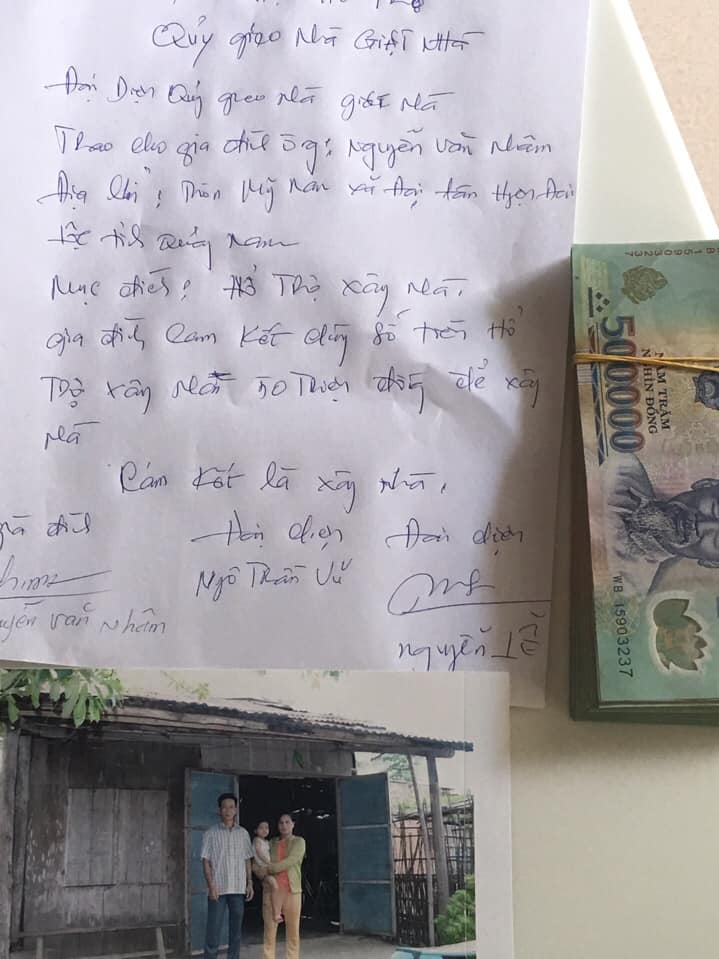 Qủy gieo Nhà Giới Nhà
Đại Diện Qủy gieo Nhà giới Nhà
Trao cho gia đình ông: Nguyễn Văn Nhâm
Địa chỉ: Thôn Mỹ Nam xã Đại tân Huyện Đại
Lộc tỉnh Quảng Nam
Mục đích: Hổ Trợ xây Nhà.
gia đình Cam Kết dùng số tiền Hổ
Trợ xây Nhà 50 Triệu đồng để xây
Nhà
Cám Kết là xây nhà.
gia đình Đại diện Đại diện
Ngô Trần Vũ
Nguyễn Văn Nhâm
Nguyễn
500000
NĂM TRĂM
NGHÌN ĐỒNG
WB 15903237